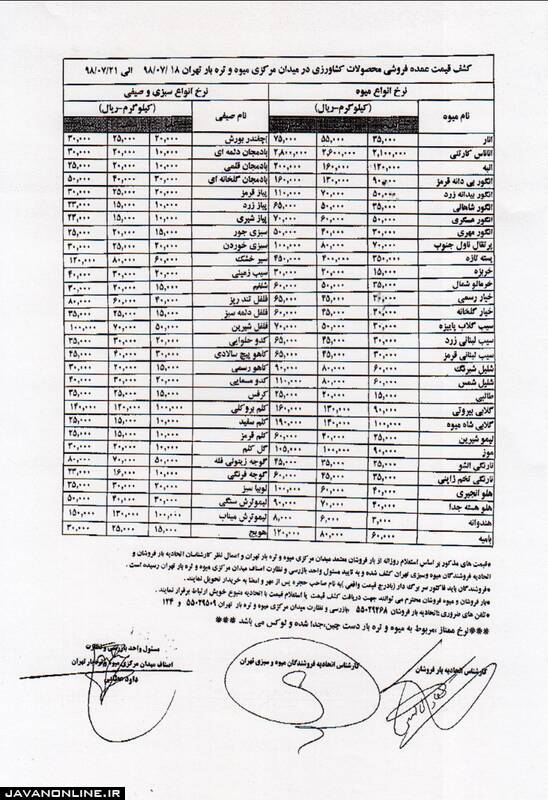 کشف قیمت عمده فروشی محصولات کشاورزی در میدان مرکزی میوه و تره بار تهران ۹۸/۰۷/۱۸ الی ۹۸/۰۷/۲۱
نرخ انواع میوه نرخ انواع سبزی و صیفی
نام میوه (کیلوگرم-ریال) نام صیفی (کیلوگرم-ریال)
انار ۳۵,۰۰۰ ۵۵,۰۰۰ ۷۵,۰۰۰ چغندر بورش ۲۰,۰۰۰ ۲۵,۰۰۰ ۳۰,۰۰۰
آناناس کارتنی ۲,۱۰۰,۰۰۰ ۲,۶۰۰,۰۰۰ ۲,۸۰۰,۰۰۰ بادمجان دلمه ای ۱۰,۰۰۰ ۲۰,۰۰۰ ۳۰,۰۰۰
انبه ۱۲۰,۰۰۰ ۱۶۰,۰۰۰ ۲۰۰,۰۰۰ بادمجان قلمی ۱۰,۰۰۰ ۲۰,۰۰۰ ۲۵,۰۰۰
انگور بی دانه قرمز ۱۳۰,۰۰۰ ۱۶۰,۰۰۰ بادمجان گلخانه ای ۳۰,۰۰۰ ۴۰,۰۰۰ ۵۰,۰۰۰
انگور بیدانه زرد ۵۰,۰۰۰ ۷۰,۰۰۰ ۱۱۰,۰۰۰ پیاز قرمز ۲۰,۰۰۰ ۲۵,۰۰۰ ۳۰,۰۰۰
انگور شاهانی ۳۵,۰۰۰ ۵۰,۰۰۰ ۶۵,۰۰۰ پیاز زرد ۱۰,۰۰۰ ۱۵,۰۰۰
انگور عسگری ۵۰,۰۰۰ ۶۰,۰۰۰ ۷۰,۰۰۰ پیاز شیری ۱۰,۰۰۰ ۱۵,۰۰۰
انگور مهری ۳۰,۰۰۰ ۴۰,۰۰۰ ۵۰,۰۰۰ سبزی جور ۱۵,۰۰۰ ۲۰,۰۰۰ ۲۵,۰۰۰
پرتقال ناول جنوب ۷۰,۰۰۰ ۸۰,۰۰۰ ۱۰۰,۰۰۰ سبزی خوردن ۲۰,۰۰۰ ۲۵,۰۰۰ ۳۰,۰۰۰
پسته تازه ۳۵۰,۰۰۰ ۴۰۰,۰۰۰ ۴۵۰,۰۰۰ سیر خشک ۶۰,۰۰۰ ۸۰,۰۰۰ ۱۲۰,۰۰۰
خربزه ۱۵,۰۰۰ ۲۰,۰۰۰ ۳۰,۰۰۰ سیب زمینی ۲۰,۰۰۰ ۳۰,۰۰۰ ۴۰,۰۰۰
خرمالو شمال ۳۵,۰۰۰ ۵۰,۰۰۰ ۶۰,۰۰۰ شلغم ۱۵,۰۰۰ ۲۰,۰۰۰ ۳۰,۰۰۰
خیار رسمی ۴۵,۰۰۰ ۶۵,۰۰۰ فلفل تند ریز ۴۰,۰۰۰ ۶۰,۰۰۰ ۸۰,۰۰۰
خیار گلخانه ۴۵,۰۰۰ ۶۰,۰۰۰ فلفل دلمه سبز ۱۵,۰۰۰ ۲۵,۰۰۰ ۳۵,۰۰۰
سیب گلاب پاییزه ۳۰,۰۰۰ ۵۰,۰۰۰ ۷۰,۰۰۰ فلفل شیرین ۵۰,۰۰۰ ۷۰,۰۰۰ ۱۰۰,۰۰۰
سیب لبنانی زرد ۳۰,۰۰۰ ۴۵,۰۰۰ ۶۵,۰۰۰ کدو حلوایی ۲۰,۰۰۰ ۳۰,۰۰۰ ۳۵,۰۰۰
سیب لبنانی قرمز ۳۰,۰۰۰ ۴۵,۰۰۰ ۶۵,۰۰۰ کاهو پیچ سالادی ۳۰,۰۰۰ ۴۰,۰۰۰
شلیل شبرنگ ۶۰,۰۰۰ ۸۰,۰۰۰ ۹۰,۰۰۰ کاهو رسمی ۱۵,۰۰۰ ۲۰,۰۰۰ ۳۰,۰۰۰
شلیل شمس ۶۰,۰۰۰ ۸۰,۰۰۰ ۱۱۰,۰۰۰ کدو مسمایی ۲۰,۰۰۰ ۳۰,۰۰۰ ۴۰,۰۰۰
طالبی ۱۵,۰۰۰ ۲۰,۰۰۰ ۲۵,۰۰۰ کرفس ۱۵,۰۰۰ ۲۵,۰۰۰ ۳۵,۰۰۰
گلابی بیروتی ۹۰,۰۰۰ ۱۳۰,۰۰۰ ۱۶۰,۰۰۰ کلم بروکلی ۱۰۰,۰۰۰ ۱۲۰,۰۰۰ ۱۴۰,۰۰۰
گلابی شاه میوه ۱۰۰,۰۰۰ ۱۴۰,۰۰۰ ۱۹۰,۰۰۰ کلم سفید ۱۰,۰۰۰ ۱۵,۰۰۰ ۲۵,۰۰۰
لیمو شیرین ۲۵,۰۰۰ ۴۰,۰۰۰ ۶۰,۰۰۰ کلم قرمز ۱۰,۰۰۰ ۱۵,۰۰۰ ۲۵,۰۰۰
موز ۹۰,۰۰۰ ۱۰۰,۰۰۰ ۱۰۵,۰۰۰ گل کلم ۱۰,۰۰۰ ۲۰,۰۰۰ ۳۰,۰۰۰
نارنگی انشو ۲۵,۰۰۰ ۳۵,۰۰۰ ۴۵,۰۰۰ گوجه زیتونی فله ۵۰,۰۰۰ ۷۰,۰۰۰ ۸۰,۰۰۰
نارنگی تخم ژاپنی ۳۵,۰۰۰ ۴۵,۰۰۰ ۶۰,۰۰۰ گوجه فرنگی ۱۰,۰۰۰ ۱۶,۰۰۰
هلو انجیری ۴۰,۰۰۰ ۶۰,۰۰۰ ۱۰۰,۰۰۰ لوبیا سبز ۲۰,۰۰۰ ۳۰,۰۰۰ ۳۵,۰۰۰
هلو هسته جدا ۴۰,۰۰۰ ۷۰,۰۰۰ ۹۰,۰۰۰ لیموترش سنگی ۳۰,۰۰۰ ۴۰,۰۰۰ ۵۰,۰۰۰
هندوانه ۳,۰۰۰ ۶,۰۰۰ ۸,۰۰۰ لیموترش میناب ۱۰۰,۰۰۰ ۱۳۰,۰۰۰ ۱۵۰,۰۰۰
بامیه ۶۰,۰۰۰ ۸۰,۰۰۰ ۱۲۰,۰۰۰ هویج ۱۵,۰۰۰ ۲۵,۰۰۰ ۳۰,۰۰۰
*قیمت های مذکور بر اساس استعلام روزانه از بار فروشان معتمد میدان مرکزی میوه و تره بار تهران و اعمال نظر کارشناسان اتحادیه بار فروشان و
اتحادیه فروشندگان میوه وسبزی تهران کشف شده و به تایید مسئول واحد بازرسی و نظارت اصناف میدان مرکزی میوه و تره بار تهران رسیده است .
*فروشندگان باید فاکتور سر برگ دار (بادرج قیمت واقعی )به نام صاحب حجره پس از مهر و امضا به خریدار تحویل نمایند.
*بار فروشان و میوه فروشان محترم می توانند جهت دریافت کشف قیمت یا استعلام قیمت با اتحادیه متبوع خویش ارتباط برقرار نمایند.
*تلفن های ضروری :اتحادیه بار فروشان ۵۵۰۲۹۳۶۸ بازرسی و نظارت میدان مرکزی میوه و تره بار تهران ۵۵۰۲۹۵۰۹ و ۱۲۴
***نرخ ممتاز مربوط به میوه و تره بار دست چین،جدا شده و لوکس می باشد ***
کارشناس اتحادیه بار فروشان
کارشناس اتحادیه فروشندگان میوه و سبزی تهران
مسئول واحد بازرسی و نظارت
اصناف میدان مرکزی میوه و تره بار تهران
داود
JAVANONLINE.IR